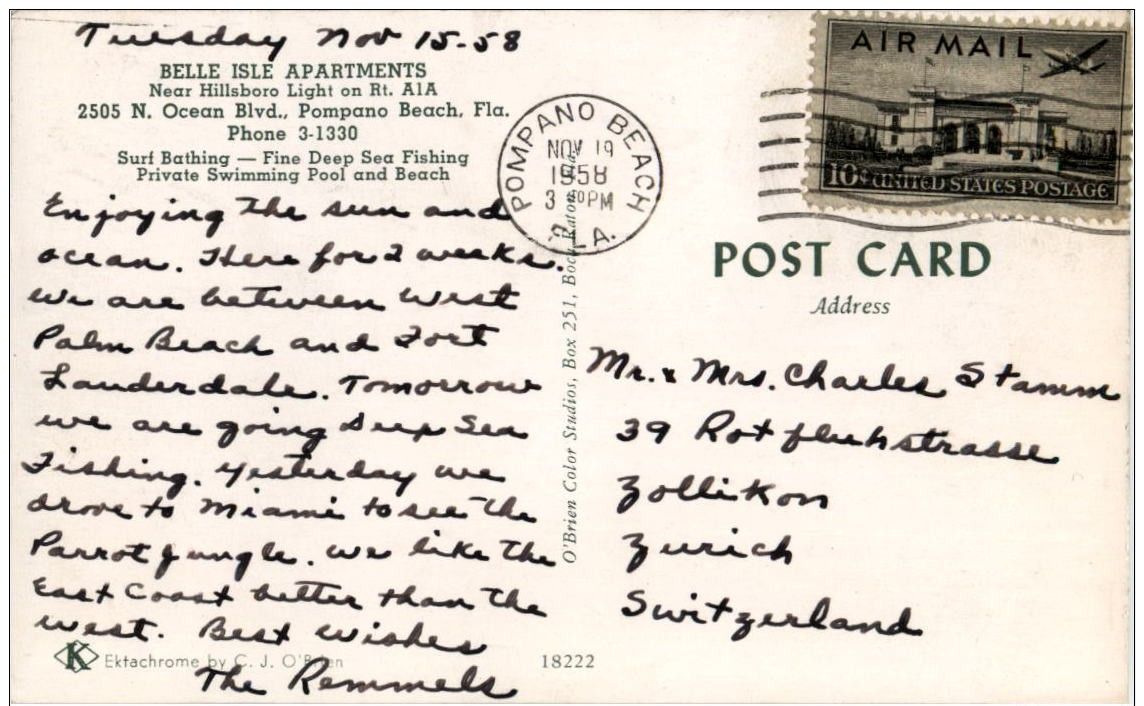 Tuesday Nov 15-58
BELLE ISLE APARTMENTS
Near Hillsboro Light on Rt. A1A
2505 N. Ocean Blvd., Pompano Beach, Fla.
Phone 3-1330
Surf Bathing — Fine Deep Sea Fishing
Private Swimming Pool and Beach
Enjoying the sun and
ocean. Here for 2 weeks.
We are between West
Palm Beach and Fort
Lauderdale. Tomorrow
we are going Deep Sea
Fishing. Yesterday we
drove to Miami to see the
Parrot Jungle. We like the
East Coast better than the
West. Best Wishes
The Remmels
K Ektachrome by C. J. O'Brien
18222
O'Brien Color Studios, Box 251, Boca Raton, Fla.
POMPANO BEACH
NOV 19
1958
3 PM
FLA.
AIR MAIL
10¢ UNITED STATES POSTAGE
POST CARD
Address
Mr. & Mrs. Charles Stamm
39 Rotfluhstrasse
Zollikon
Zurich
Switzerland